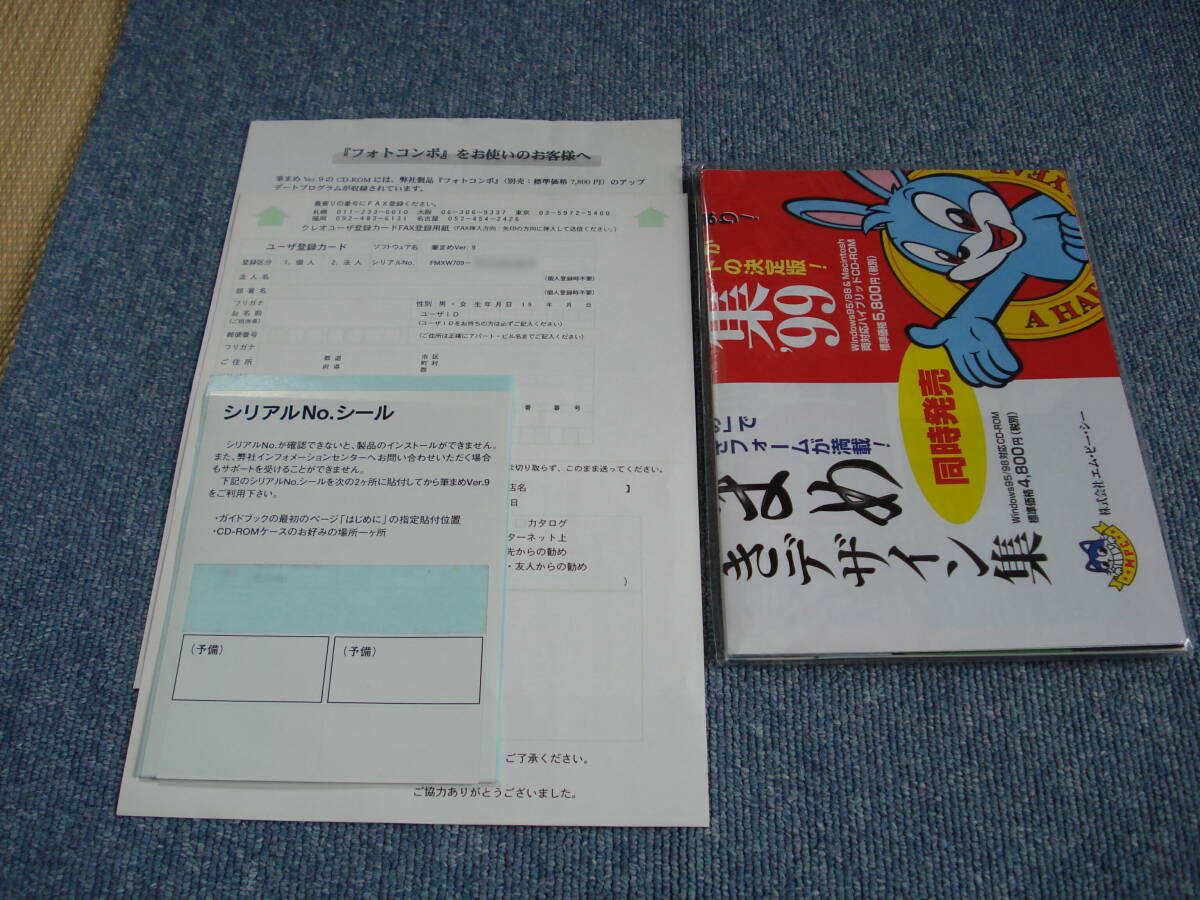 『フォトコンポ』をお使いのお客様へ
筆まめ Ver. 9 の CD-ROM には、弊社製品『フォトコンポ』（別売：標準価格 7,800 円）のアップ
デートプログラムが収録されています。
最寄りの番号にＦＡＸ登録ください。
札幌 011-233-0010 大阪 06-306-9337 東京 03-5972-5400
福岡 092-483-6131 名古屋 052-454-2426
クレオユーザ登録カードFAX登録用紙（FAX挿入方向：矢印の方向に挿入して送信ください。）
ユーザ登録カード ソフトウェア名 筆まめVer. 9
登録区分 1. 個人 2. 法人 シリアルNo. FMXW709－
法人名 （個人登録時不要）
部署名 （個人登録時不要）
フリガナ 性別 男・女 生年月日 19 年 月 日
お名前 ユーザＩＤ
（ご担当者） （ユーザＩＤをお持ちの方は必ずご記入ください）
郵便番号 （ご住所は正確にアパート・ビル名までご記入ください）
フリガナ
ご住所 都道 市区
府県 町村
郡
番 番号
シリアルNo.シール
シリアルNo.が確認できないと、製品のインストールができません。
また、弊社インフォメーションセンターへお問い合わせいただく場合
もサポートを受けることができません。
下記のシリアルNo.シールを次の2ヶ所に貼付してから筆まめVer.9
をご利用下さい。
・ガイドブックの最初のページ「はじめに」の指定貼付位置
・CD-ROMケースのお好みの場所一ヶ所
（予備）
（予備）
は切り取らず、このまま送ってください。
店名 】
日
□カタログ
ターネット上
先からの勧め
・友人からの勧め
）
ご了承ください。
ご協力ありがとうございました。
あり！
ドの決定版！
集'99
Windows95/98 & Macintosh
両対応ハイブリッドCD-ROM
標準価格5,800円（税別）
A HA
同時発売
め」で
きフォームが満載！
まめ
きデザイン集
Windows95/98対応CD-ROM
標準価格4,800円（税別）
株式会社 エム・ピー・シー
MPC